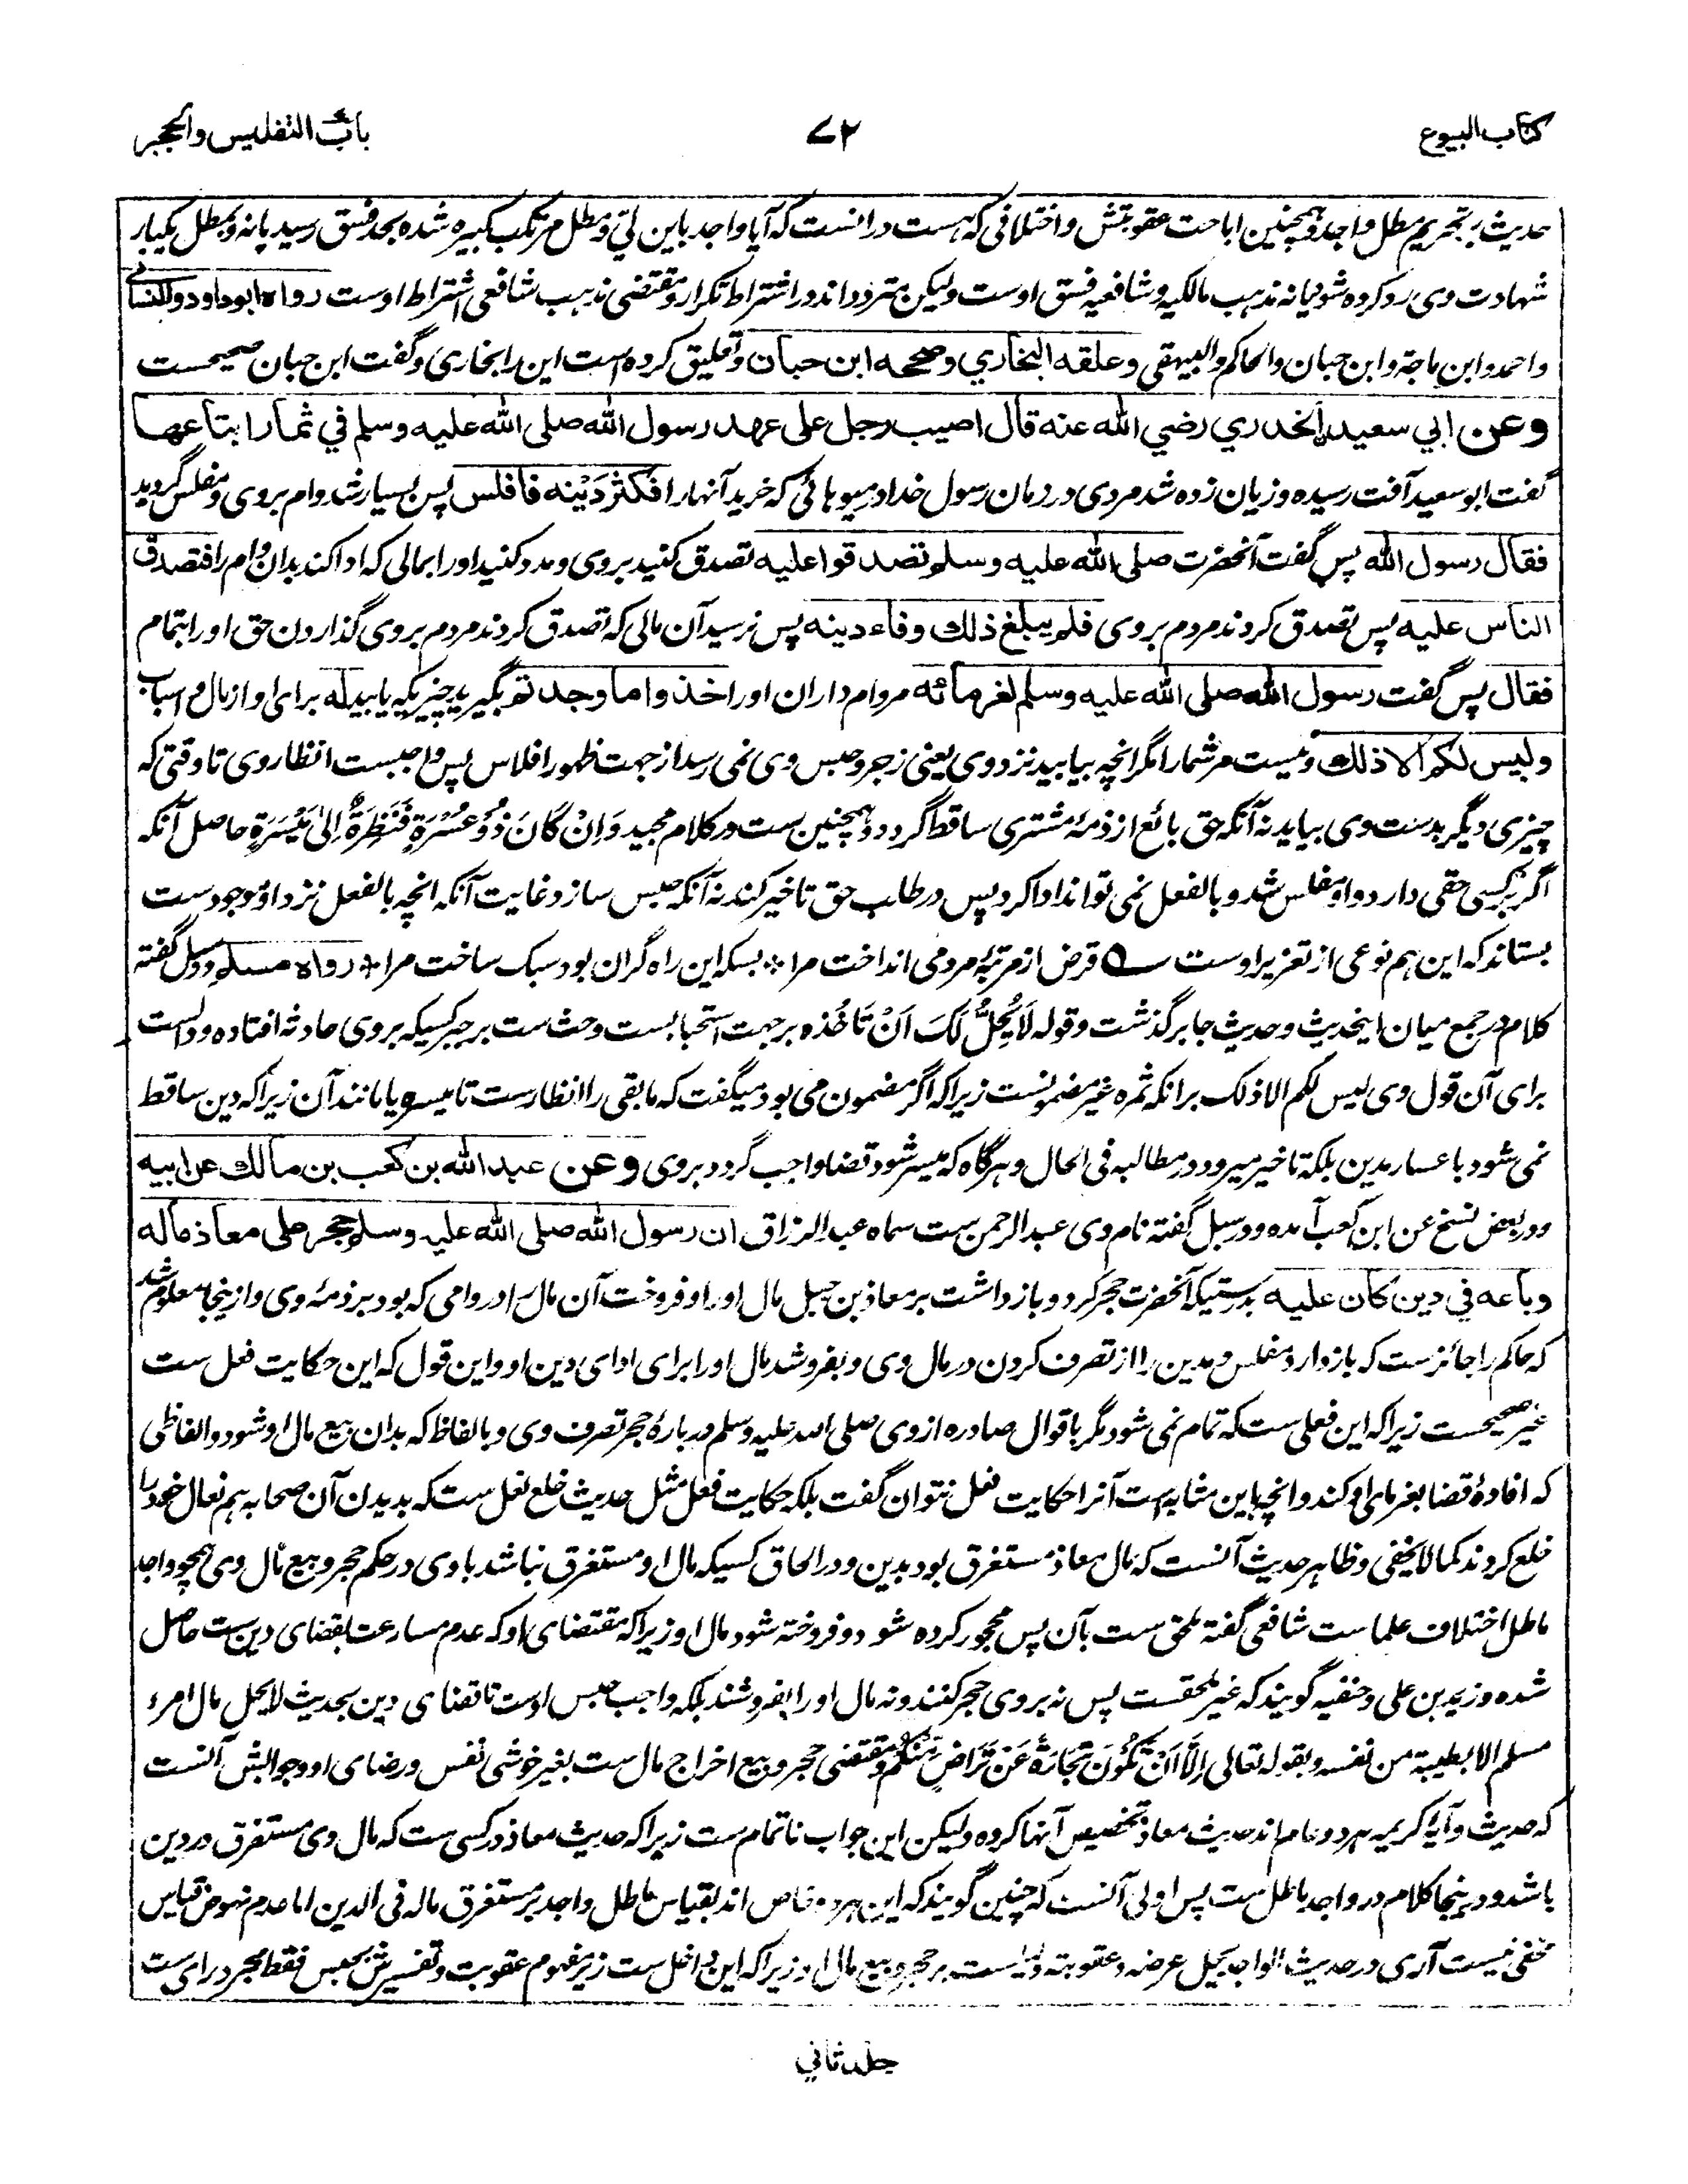 کتاب البیوع
۷۲
باب التفلیس والحجر
حدیث بر تحریم مطل واجد و همچنین اباحت عقوبتش و اختلافی که هست درانست که آیا واجد باین لَی و مطل مرتکب کبیره شده بحد فسق رسید یا نه و بمطل یکبار
شهادت وی رد کرده شود یا نه مذهب مالکیه و شافعیه فسق اوست ولیکن متردد اند در اشتراط تکرار و مقتضی مذهب شافعی اشتراط اوست رواه ابوداود والنسائی
واحمد وابن ماجة وابن حبان والحاکم والبیهقی وعلقه البخاري وصححه ابن حبان وتعلیق کرده است این را بخاری وگفت ابن حبان صحیحست
وعن ابي سعید الخدري رضي الله عنه قال اصیب رجل علی عهد رسول الله صلی الله علیه وسلم في ثمار ابتاعها
گفت ابوسعید آفت رسیده و زیان زده شد مردی در زمان رسول خدا در میوهائی که خرید آنها را فکثر دَیْنه فافلس پس بسیار شد وام بروی و مفلس گردید
فقال رسول الله پس گفت آنحضرت صلی الله علیه وسلم تصدقوا علیه تصدق کنید بروی و مدد کنید اورا بمالی که ادا کند بدان وام را فتصدق
الناس علیه پس تصدق کردند مردم بروی فلم یبلغ ذلك وفاء دینه پس نرسید آن مالی که تصدق کردند مردم بروی گذاردن حق اورا بتمام
فقال پس گفت رسول الله صلی الله علیه وسلم لغرمائه مروام داران اورا خذوا ما وجدتم بگیرید چیزیکه یابید له برای او از مال و اسباب
ولیس لکم الا ذلك ونیست مر شمارا مگر انچه بیابید نزد وی یعنی زجر و حبس وی نمی رسد از جهت ظهور افلاس پس واجبست انظار وی تا وقتی که
چیزی دیگر بدست وی بیاید نه آنکه حق بائع از ذمهٔ مشتری ساقط گردد و همچنین ست در کلام مجید وَاِنْ کَانَ ذُوْ عُسْرَةٍ فَنَظِرَةٌ اِلیٰ مَیْسَرَةٍ حاصل آنکه
اگر بر کسی حقی دارد و او مفلس شد و بالفعل نمی تواند ادا کرد پس در طلب حق تاخیر کند نه آنکه حبس سازد غایت آنکه انچه بالفعل نزد او موجودست
بستاند که این هم نوعی از تعزیر اوست ؎ قرض از مرتبهٔ مردمی انداخت مرا * بسکه این راه گران بود سبک ساخت مرا * رواه مسلم و در سبل گفته
کلام در جمع میان اینحدیث و حدیث جابر گذشت و قوله لَا یَحِلُّ لَکَ اَنْ تَاخُذَه بر جهت استحبابست و حث ست بر جبر کسیکه بروی حادثه افتاده و دالست
برای آن قول وی لیس لکم الا ذلک بر انکه ثمره غیر مضمونست زیراکه اگر مضمون می بود میگفت که ما بقی را انظارست تا میسره یا مانند آن زیراکه دین ساقط
نمی شود باعسار مدین بلکه تاخیر میرود در مطالبه فی الحال و هرگاه که میسر شود قضا واجب گردد بروی وعن عبد الله بن کعب بن مالك عن ابیه
و در بعض نسخ عن ابن کعب آمده و در سبل گفته نام وی عبدالرحمن ست سماه عبدالرزاق ان رسول الله صلی الله علیه وسلم حجر علی معاذ ماله
وباعه في دین کان علیه بدرستیکه آنحضرت حجر کرد و بازداشت بر معاذ بن جبل مال اورا و فروخت آن مال را در وامی که بود بر ذمهٔ وی و ازینجا معلوم شد
که حاکم را جائزست که بازدارد مفلس مدین را از تصرف کردن در مال وی و بفروشد مال اورا برای ادای دین او و این قول که این حکایت فعل ست
غیر صحیحست زیراکه این فعلی ست که تمام نمی شود مگر باقوال صادره از وی صلی الله علیه وسلم در بارهٔ حجر تصرف وی و بالفاظ که بدان بیع مال او شود و الفاظی
که افادهٔ قضا بغرمای او کند و انچه باین مثابه است آنرا حکایت فعل نتوان گفت بلکه حکایت فعل مثل حدیث خلع نعل ست که بدیدن آن صحابه هم نعال خود را
خلع کردند کما لا یخفی و ظاهر حدیث آنست که مال معاذ مستغرق بود بدین و در الحاق کسیکه مال او مستغرق نباشد باوی در حکم حجر و بیع مال وی همچو واجد
ماطل اختلاف علماست شافعی گفته ملحق ست بآن پس محجور کرده شود و فروخته شود مال او زیراکه مقتضای او که عدم مسارعت بقضای دین ست حاصل
شده و زید بن علی و حنفیه گویند که غیر ملحقست پس نه بروی حجر کنند و نه مال اورا بفروشند بلکه واجب حبس اوست تا قضای دین بحدیث لا یحل مال امرء
مسلم الا بطیبة من نفسه و بقوله تعالی اِلَّا اَنْ تَکُوْنَ تِجَارَةً عَنْ تَرَاضٍ مِنْکُمْ و مقتضی حجر و بیع اخراج مال ست بغیر خوشی نفس و رضای او و جوابش آنست
که حدیث و آیهٔ کریمه هردو عام اند حدیث معاذ تخصیص آنها کرده ولیکن این جواب ناتمام ست زیراکه حدیث معاذ در کسی ست که مال وی مستغرق در دین
باشد و درینجا کلام در واجد ماطل ست پس اولی آنست که چنین گویند که این هردو خاص اند بقیاس ماطل واجد بر مستغرق ماله فی الدین اما عدم نهوض قیاس
مخفی نیست آری در حدیث الواجد یحل عرضه و عقوبته دلیل ست بر حجر و بیع مال او زیراکه این داخل ست زیر مفهوم عقوبت و تفسیرش بحبس فقط مجرد رای ست
جلد ثاني